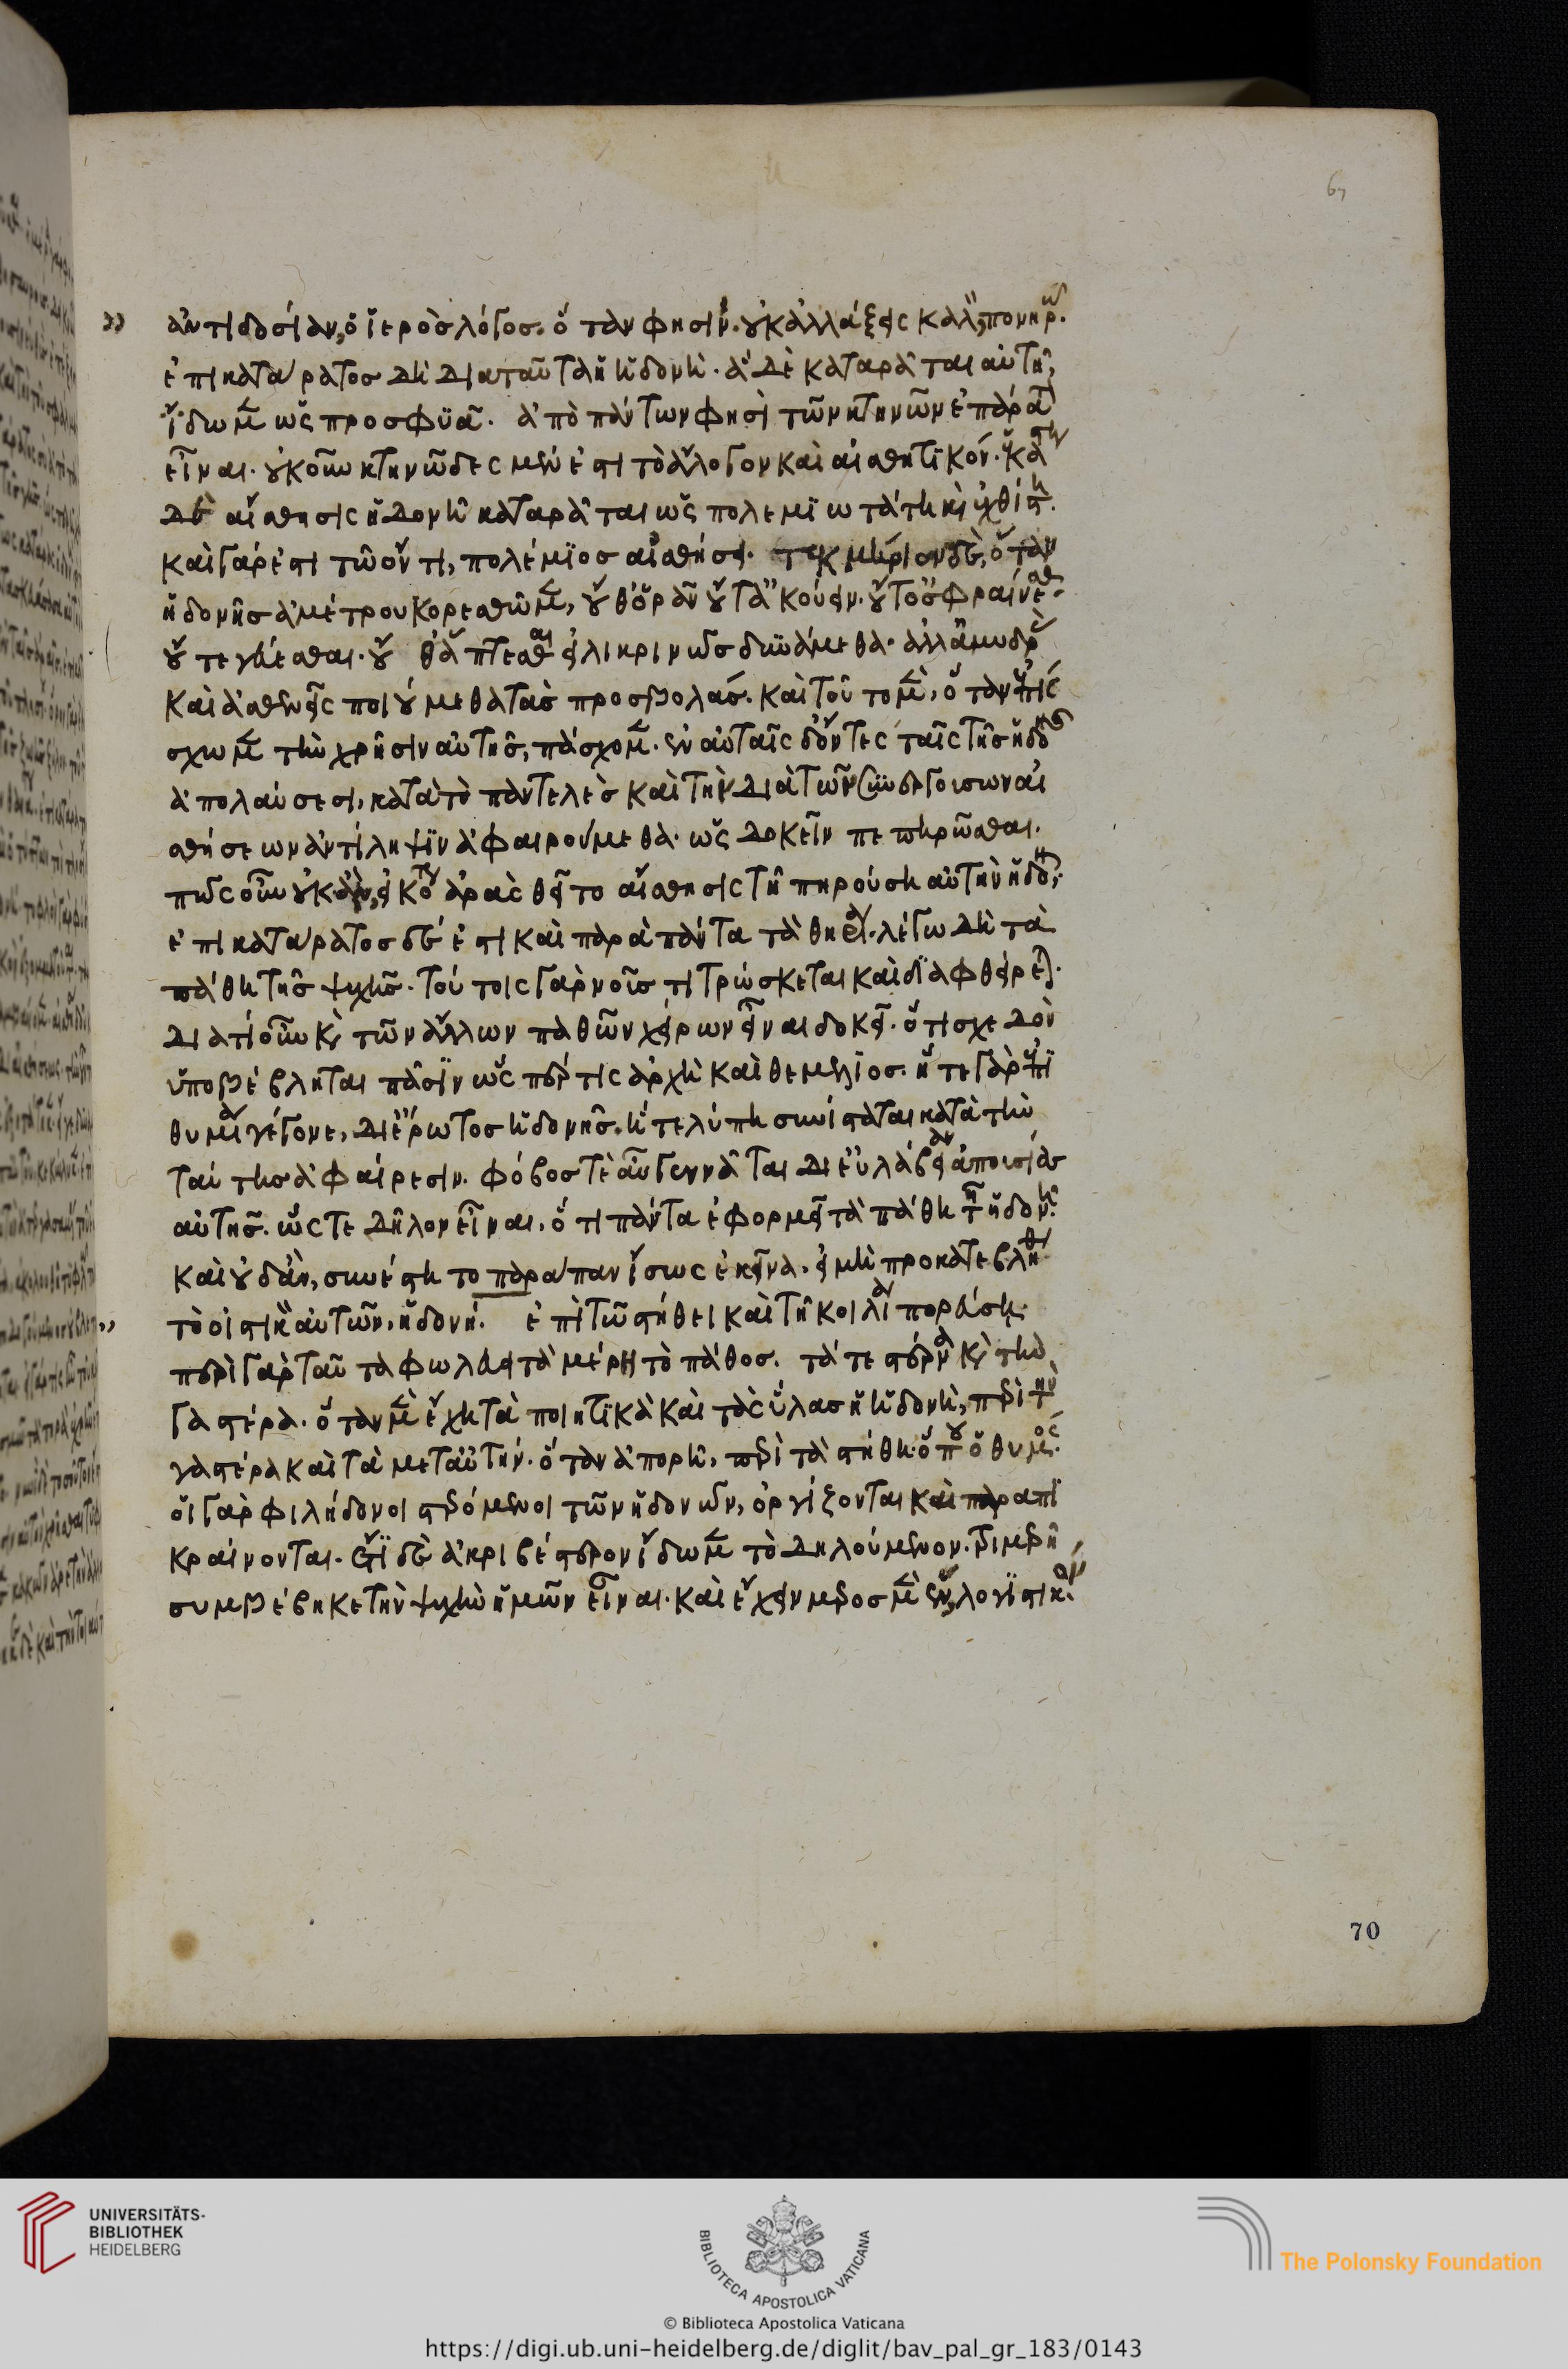 ἀντίδοσίαν, ὁ ἱερὸς λόγος. ὅταν φησὶν. οὐκ ἀλλάξεις καλὸν πονηρῷ.
ἐπικατάρατος δὴ διαταῦτα ἡ ἡδονή. ἃ δὲ καταρᾶται αὐτῇ,
ἴδωμεν ὡς προσφυᾶ. ἀπὸ πάντων φησὶ τῶν κτηνῶν ἐπάρατον
εἶναι. οὐκοῦν κτηνῶδες μέν ἐστι τὸ ἄλογον καὶ αἰσθητικόν. ἑκάστη
δὲ αἴσθησις ἡδονῇ καταρᾶται ὡς πολεμιωτάτη καὶ ἐχθίστη.
καὶ γάρ ἐστι τῷ ὄντι, πολέμιος αἰσθήσει. τεκμήριον δέ, ὅταν
ἡδονῆς ἀμέτρου κορεσθῶμεν, οὔθ' ὁρᾶν οὔτ' ἀκούειν. οὔτ' ὀσφραίνεσθαι
οὔτε γεύεσθαι. οὔθ' ἅπτεσθαι εἰλικρινῶς δυνάμεθα. ἀλλ' ἀμυδρὰς
καὶ ἀσθενεῖς ποιούμεθα τὰς προσβολάς. καὶ τοῦτο μὲν, ὅταν ἐπί
σχωμεν τὴν χρῆσιν αὐτῆς, πάσχομεν. ἐν αὐταῖς δ' ὄντες ταῖς τῆς ἡδονῆς
ἀπολαύσεσι, κατὰ τὸ παντελὲς καὶ τὴν διὰ τῶν συνεργουσῶν αἰ
σθήσεων ἀντίληψιν ἀφαιρούμεθα. ὡς δοκεῖν πεπηρῶσθαι.
πῶς οὖν οὐκ ἂν, εἰκότως ἀρὰς θεῖτο αἴσθησις τῇ πηρούσῃ αὐτὴν ἡδονῇ;
ἐπικατάρατος δέ ἐστι καὶ παρὰ πάντα τὰ θηρία. λέγω δὴ τὰ
πάθη τῆς ψυχῆς. τούτοις γὰρ ὁ νοῦς τιτρώσκεται καὶ διαφθείρεται.
διατί οὖν καὶ τῶν ἄλλων παθῶν χείρων εἶναι δοκεῖ. ὅτι σχεδὸν
ὑποβέβληται πᾶσιν ὥσπερ τις ἀρχὴ καὶ θεμέλιος. ἥ τε γὰρ ἐπι
θυμία γέγονε, δι' ἔρωτος ἡδονῆς. ἥ τε λύπη συνίσταται κατὰ τὴν
ταύτης ἀφαίρεσιν. φόβος τὲ αὖ γεννᾶται δι' εὐλάβειαν ἀπουσίας
αὐτῆς. ὥστε δῆλον εἶναι, ὅτι πάντα ἐφορμεῖ τὰ πάθη τῇ ἡδονῇ.
καὶ οὐδ' ἂν, συνέστη το παράπαν ἴσως ἐκεῖνα. εἰ μὴ προκατεβλήθη
τὸ οἰστικὸν αὐτῶν. ἡδονή. ἐπὶ τῷ στήθει καὶ τῇ κοιλίᾳ πορεύσῃ.
περὶ γὰρ ταῦτα φωλεύει τὰ μέρη τὸ πάθος. τά τε στέρνα καὶ τὴν
γαστέρα. ὅταν μὲν ἔχῃ τὰ ποιητικὰ καὶ τὰς ὕλας ἡ ἡδονή, περὶ τὴν
γαστέρα καὶ τὰ μετ' αὐτήν. ὅταν ἀπορῇ, περὶ τὰ στήθη. ὅπου ὁ θυμός.
οἱ γὰρ φιλήδονοι στερόμενοι τῶν ἡδονῶν, ὀργίζονται καὶ παραπι
κραίνονται. ἔτι δὲ ἀκριβέστερον ἴδωμεν τὸ δηλούμενον. τριμερῆ
συμβέβηκε τὴν ψυχὴν ἡμῶν εἶναι. καὶ ἔχειν μέρος μὲν ἓν, λογιστικόν.
67
70
UNIVERSITÄTS-
BIBLIOTHEK
HEIDELBERG
BIBLIOTECA APOSTOLICA VATICANA
The Polonsky Foundation
© Biblioteca Apostolica Vaticana
https://digi.ub.uni-heidelberg.de/diglit/bav_pal_gr_183/0143